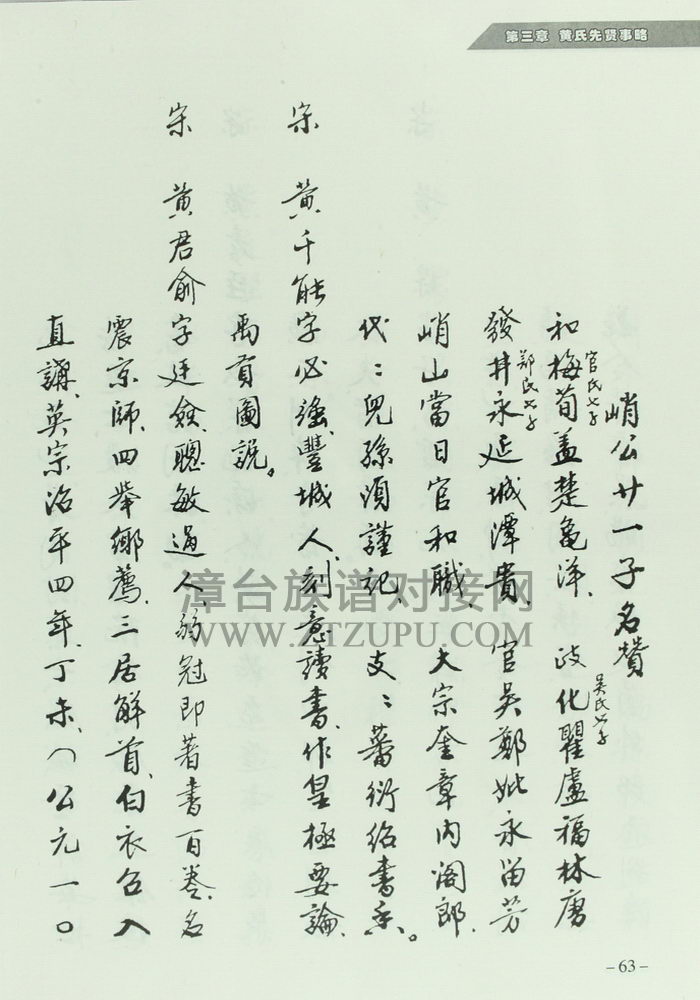 第三章 黄氏先贤事略
峭公廿一子名贊
官氏七子
吴氏七子
和梅荀盖楚龜洋、政化瞿盧福林唐
鄭氏七子
發井永延城潭貴、官吴鄭妣永留芳
峭山當日官和職、大宗奎章内阁郎、
代〻兒孫須謹記、支〻蕃衍紹書香。
宋 黄千能字必强、豐城人、刻意讀書、作皇極要論、
禹貢圖說。
宋 黄君俞字廷僉、聰敏過人、弱冠即著書百卷、名
震京師、四举鄉薦、三居解首、白衣召入
直講、英宗治平四年、丁未、(公元一〇
漳台族谱对接网
WWW.ZTZUPU.COM
–63–